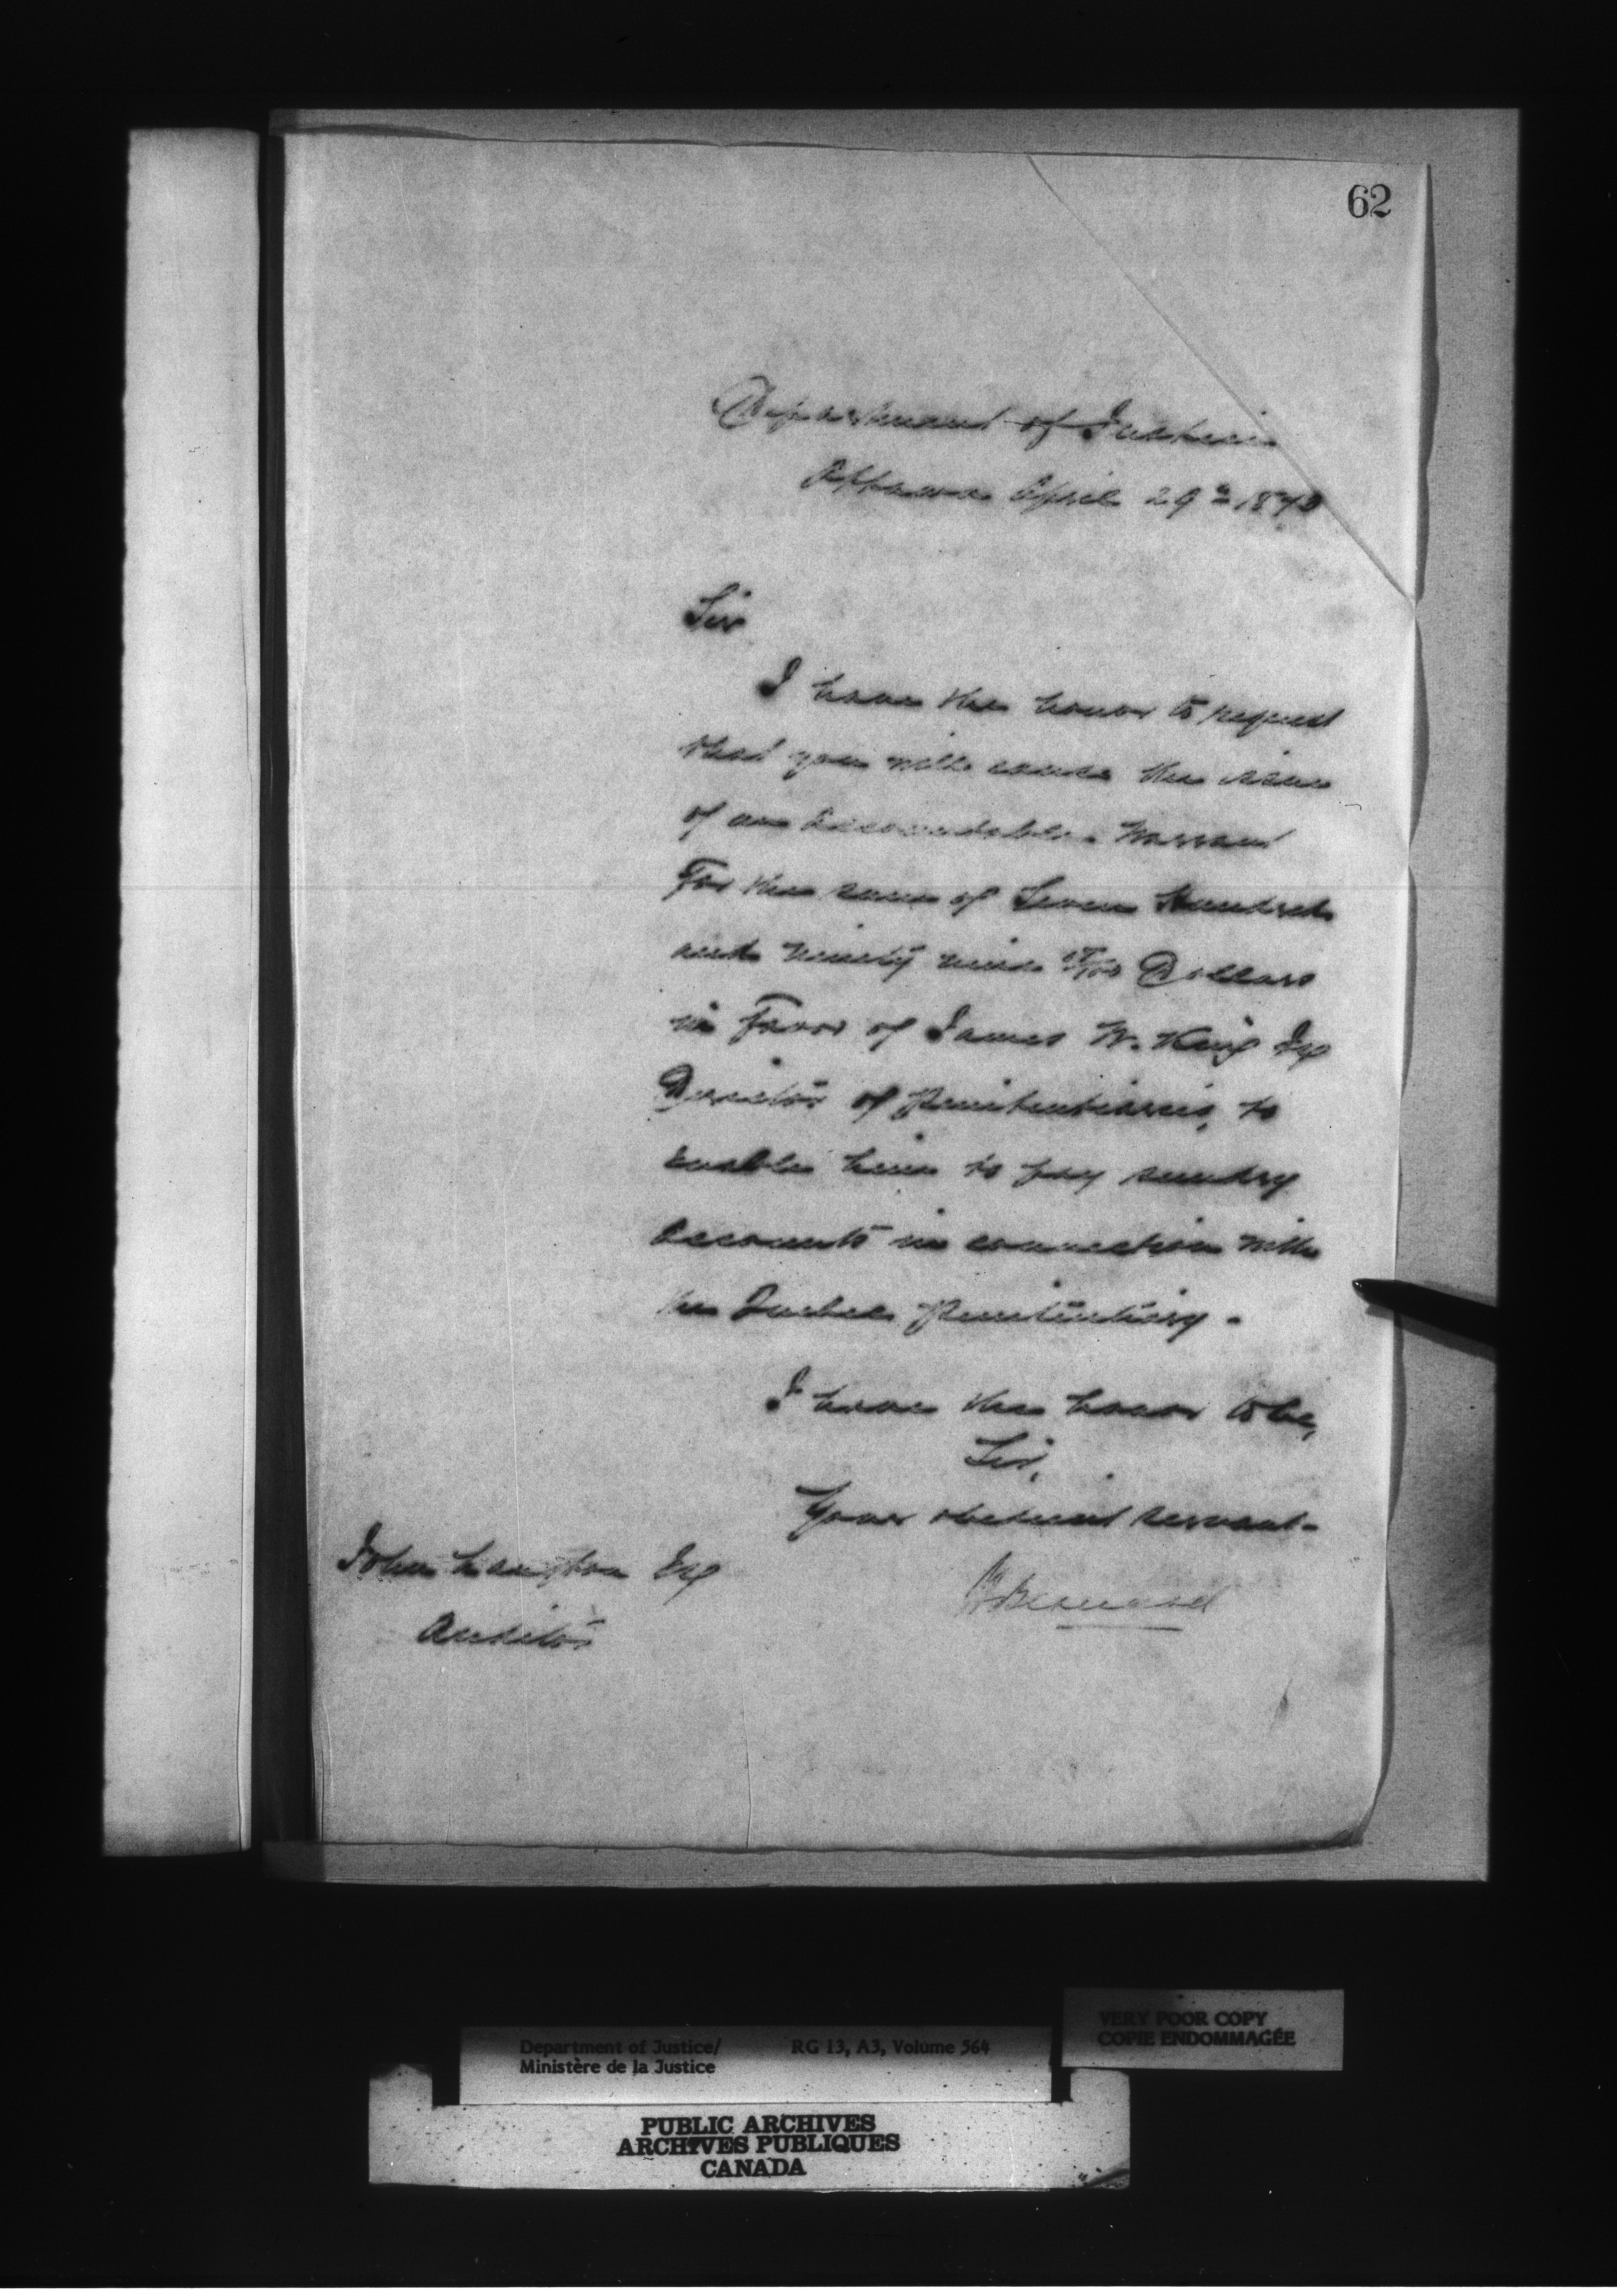 62
Department of Justice
Ottawa April 29th 1873
Sir
I have the honor to request
that you will cause the issue
of an Accountable Warrant
For the sum of Seven Hundred
and ninety nine Dollars
in Favor of James W. King Esq
Director of Penitentiaries, to
enable him to pay sundry
Accounts in connection with
the Quebec Penitentiary.
I have the honor to be,
Sir,
Your obedient servant.
John Langton Esq
Auditor
H Bernard
VERY POOR COPY
COPIE ENDOMMAGÉE
Department of Justice/ RG 13, A3, Volume 564
Ministère de la Justice
PUBLIC ARCHIVES
ARCHIVES PUBLIQUES
CANADA